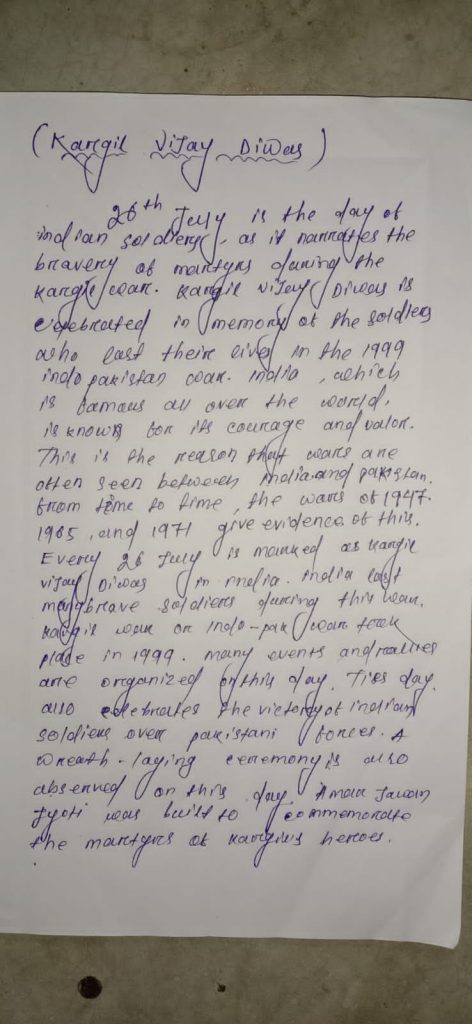 (Kargil Vijay Diwas)
26th July is the day of
indian soldiers, as it narrates the
bravery of martyrs during the
kargil war. kargil vijay Diwas is
celebrated in memory of the soldiers
who last their lives in the 1999
indo pakistan war. India, which
is famous all over the world,
is known for its courage and valor.
This is the reason that wars are
often seen between india and pakistan.
from time to time, the wars of 1947
1965, and 1971 give evidence of this.
Every 26 July is marked as kargil
vijay Diwas in india. india last
many brave soldiers during this war.
kargil war or Indo-pak war took
place in 1999. many events and rallies
are organized on this day. This day
also celebrates the victory of indian
soldiers over pakistani forces. A
wreath-laying ceremony is also
observed on this day. Amar Jawan
Jyoti was built to commemorate
the martyrs of kargils heroes.